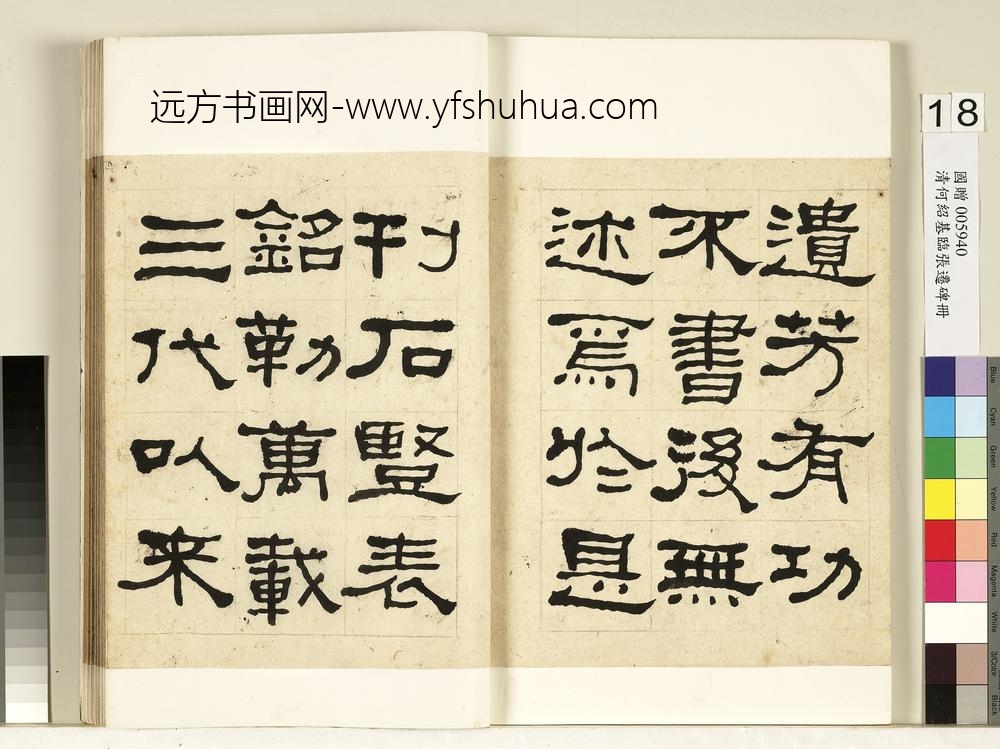 远方书画网-www.yfshuhua.com
遺芳有功
不書後無
述焉於是
刊石豎表
銘勒萬載
三代以来
18
國贈 005940
清何紹基臨張遷碑冊
Blue
Cyan
Green
Yellow
Red
Magenta
White
3/Color
Black